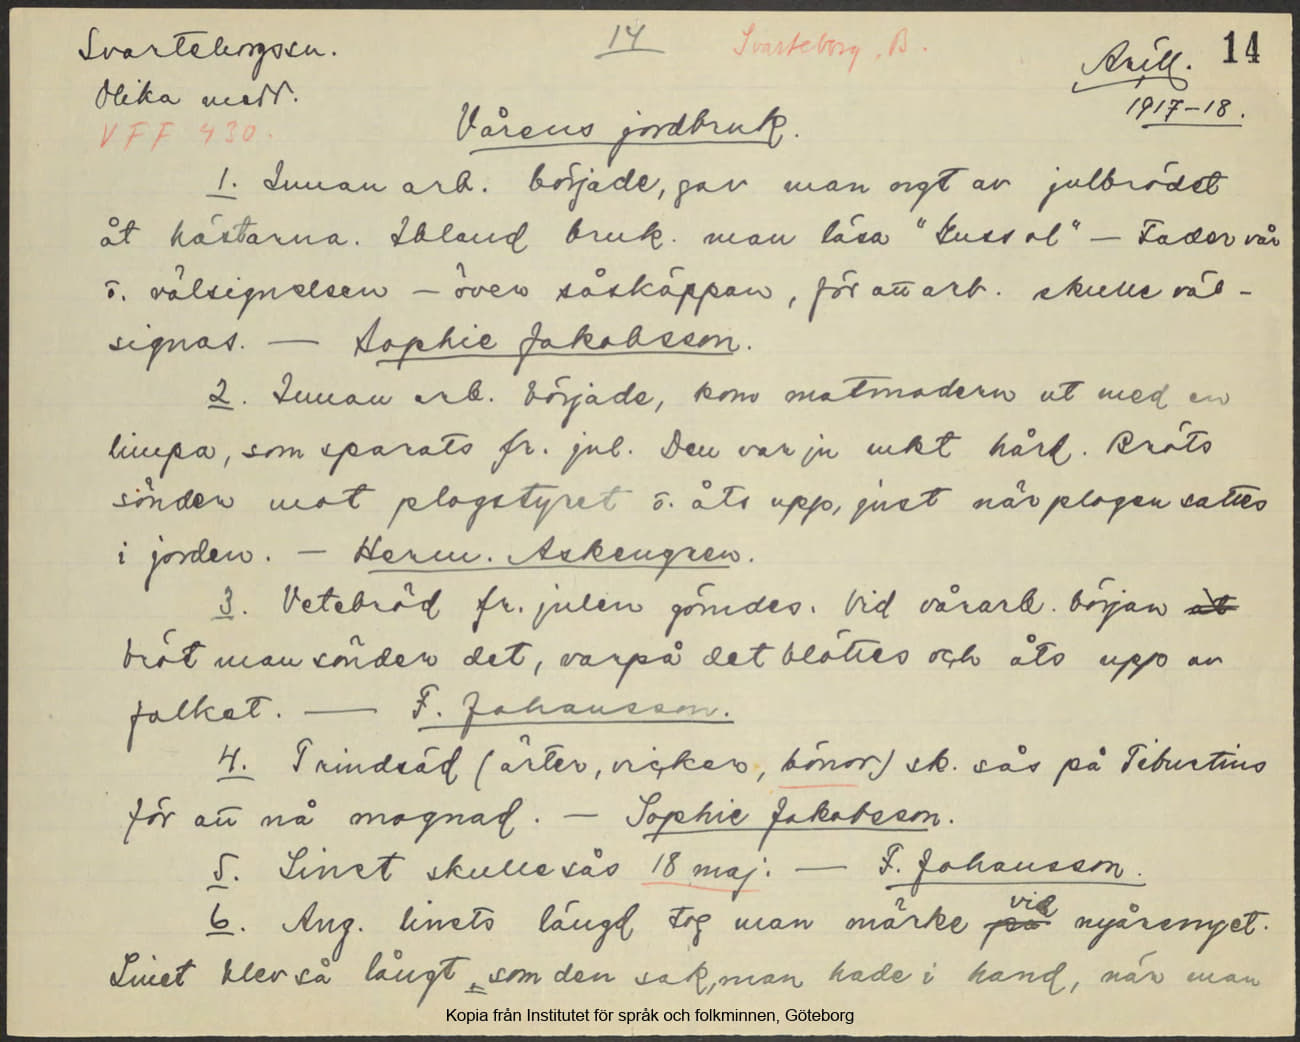 Svarteborgssn.
14
Svarteborg, B.
Arill.
14
Olika medd.
1917-18.
VFF 430.
Vårens jordbruk.
1. Innan arb. började, gav man ngt av julbrödet
åt hästarna. Ibland bruk. man läsa "Guss ol" — Fader vår
o. välsignelsen — över såskäppan, för att arb. skulle väl-
signas. — Sophie Jakobsson.
2. Innan arb. började, kom matmodern ut med en
limpa, som sparats fr. jul. Den var ju mkt hård. Bröts
sönder mot plogstyret o. åts upp, just när plogen sattes
i jorden. — Herm. Askengren.
3. Vetebröd fr. julen gömdes. Vid vårarb. början åt
bröt man sönder det, varpå det blöttes och åts upp av
folket. — F. Johansson.
4. Trindsäd (ärter, vicker, bönor) sk. sås på Tiburtius
för att nå mognad. — Sophie Jakobsson.
5. Linet skulle sås 18 maj. — F. Johansson.
6. Ang. linets längd tog man märke på vid nyårsnyet.
Linet blev så långt, som den sak, man hade i hand, när man
Kopia från Institutet för språk och folkminnen, Göteborg